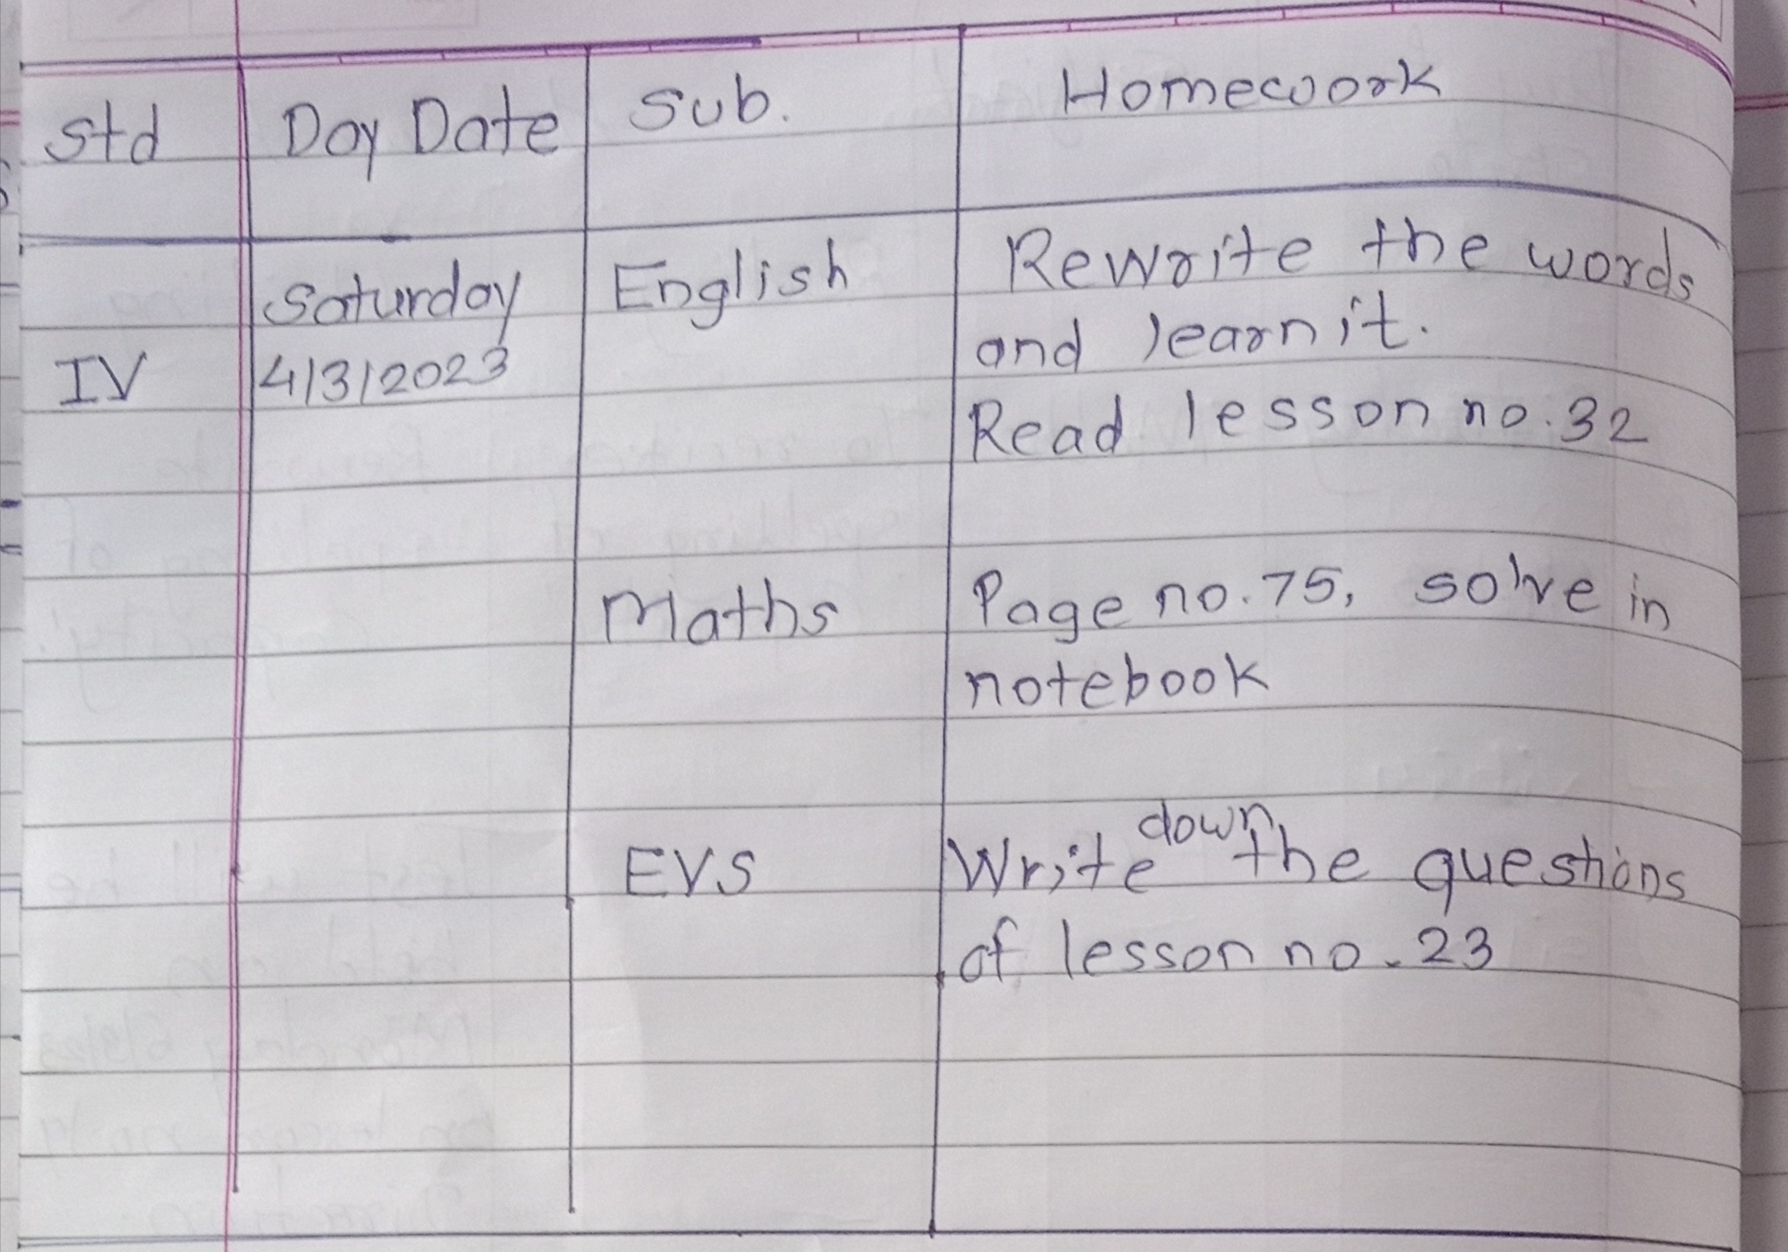 Std Day Date Sub. Homework
Saturday English Rewrite the words
and learn it.
IV 4/3/2023
Read lesson no. 32
Maths Page no. 75, solve in
notebook
EVS Write down the questions
of lesson no. 23